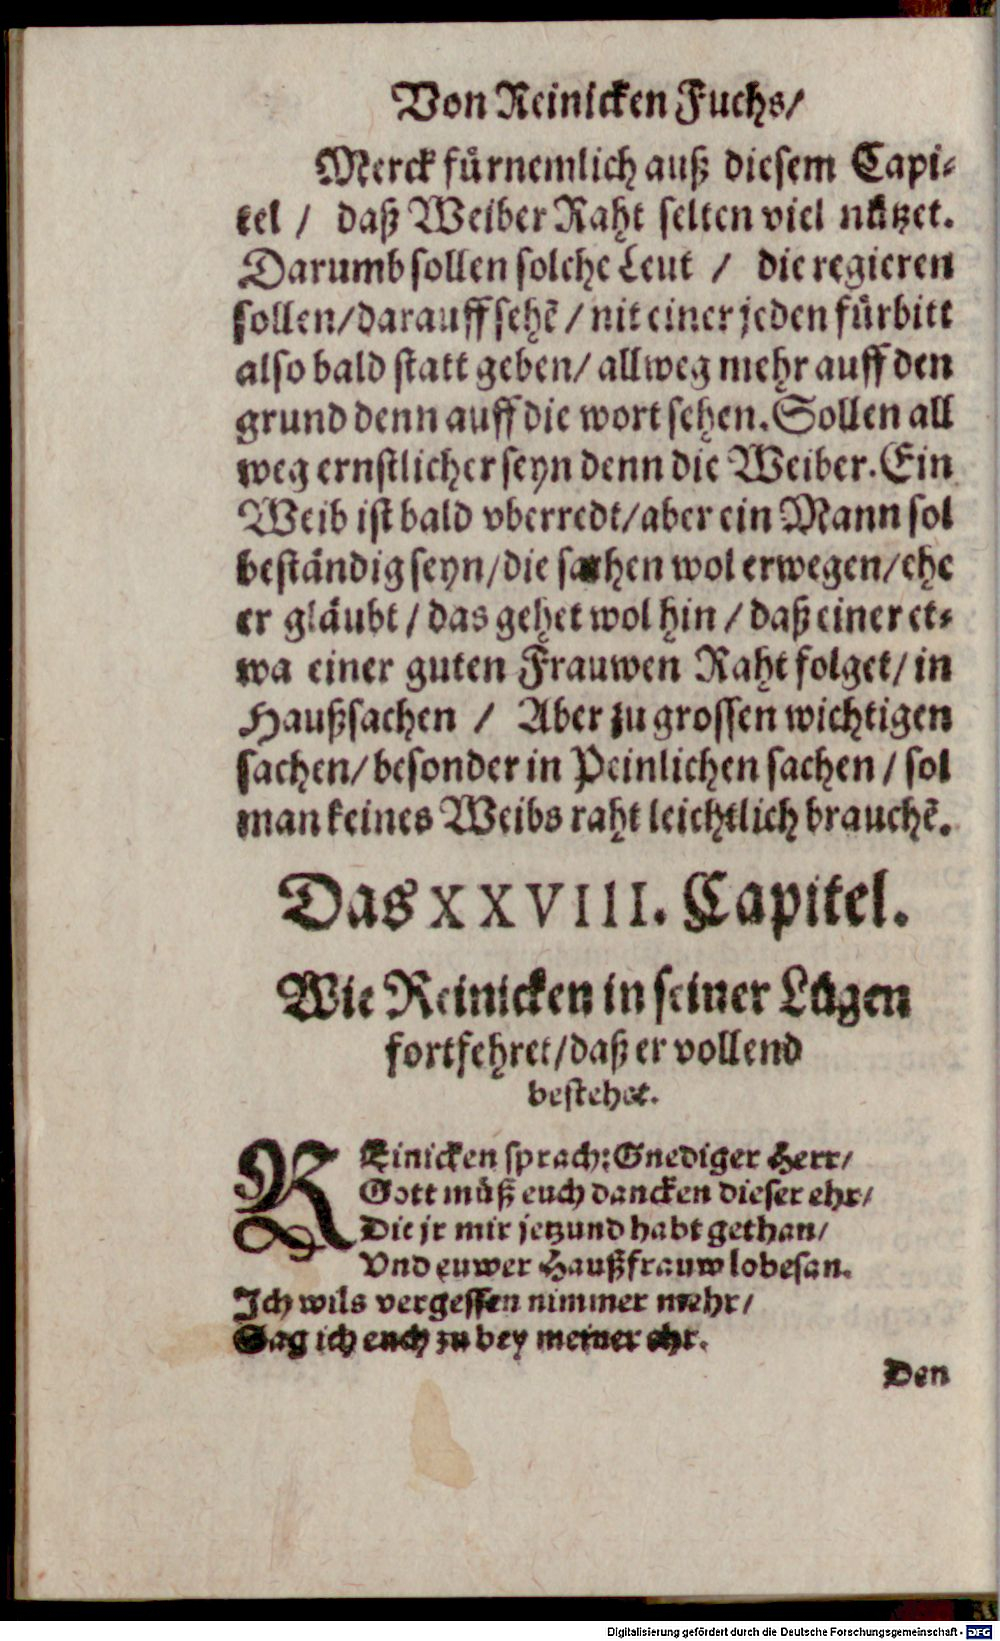 Von Reinicken Fuchs/
Merck fürnemlich auß diesem Capi-
tel / daß Weiber Raht selten viel nützet.
Darumb sollen solche Leut / die regieren
sollen/darauff sehẽ / nit einer jeden fürbitt
also bald statt geben/ allweg mehr auff den
grund denn auff die wort sehen. Sollen all
weg ernstlicher seyn denn die Weiber. Ein
Weib ist bald vberredt/aber ein Mann sol
beständig seyn/die sachen wol erwegen/ehe
er gläubt / das gehet wol hin / daß einer et-
wa einer guten Frauwen Raht folget/ in
Haußsachen / Aber zu grossen wichtigen
sachen/ besonder in Peinlichen sachen / sol
man keines Weibs raht leichtlich brauchẽ.
Das XXVIII. Capitel.
Wie Reinicken in seiner Lügen
fortfehret/daß er vollend
bestehet.
REinicken sprach: Gnediger Herr/
Gott müß euch dancken dieser ehr/
Die jr mir jetzund habt gethan/
Vnd euwer Haußfrauw lobesan.
Ich wils vergessen nimmer mehr/
Sag ich euch zu bey meiner ehr.
Den
Digitalisierung gefördert durch die Deutsche Forschungsgemeinschaft - DFG